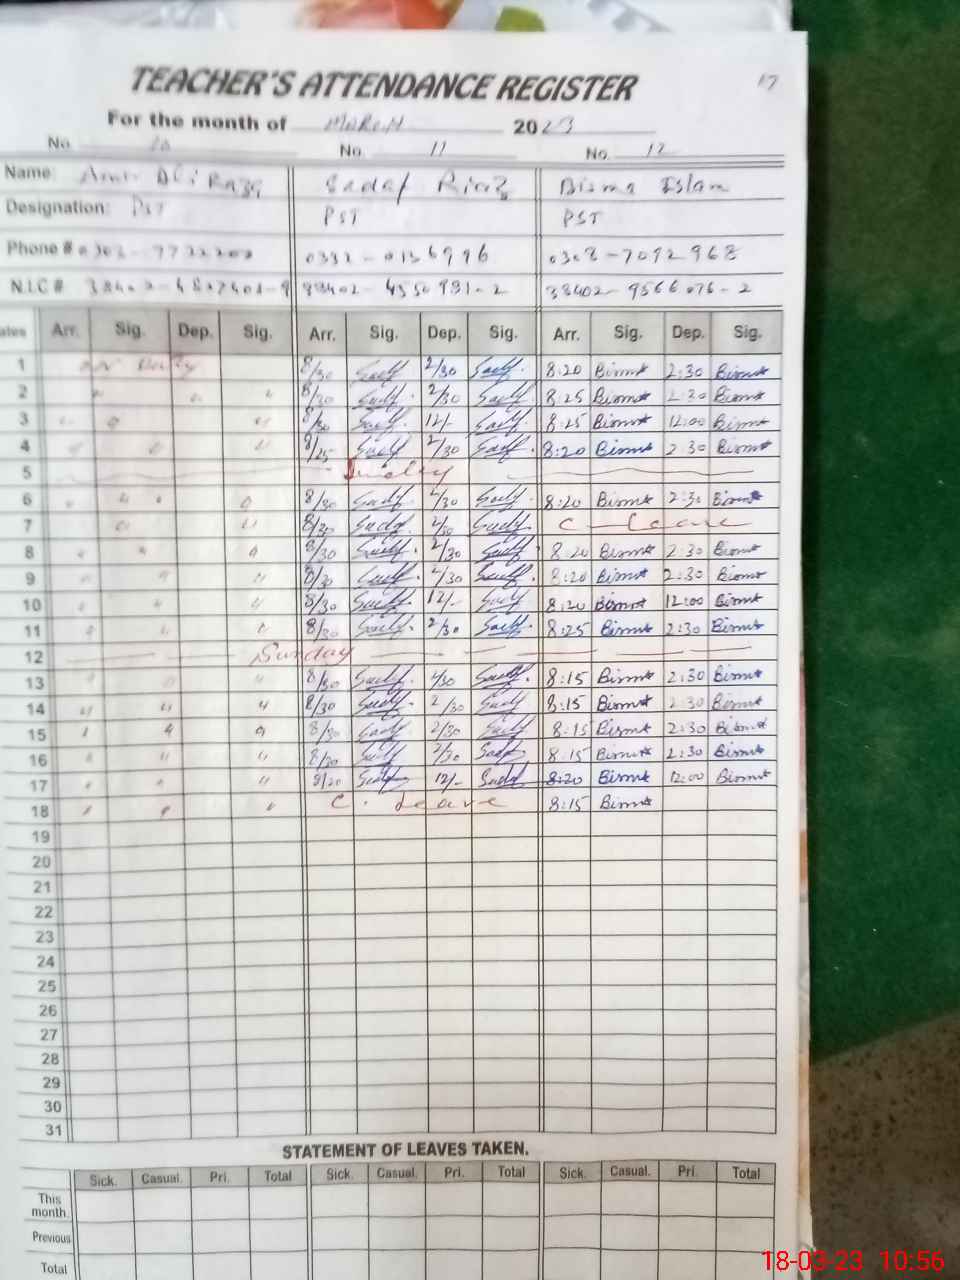 17
TEACHER'S ATTENDANCE REGISTER
For the month of MARCH 2023
No. 10 No. 11 No. 12
Name: Amir Ali Raza Sadaf Riaz Bisma Islam
Designation: PST PST PST
Phone # 0332-0136996 0308-7092968
N.I.C # 38402-4550981-2 38402-9566076-2
ates Arr. Sig. Dep. Sig. Arr. Sig. Dep. Sig. Arr. Sig. Dep. Sig.
1 8/30 Sadf 2/30 Sadf 8:20 Bisma 2:30 Bisma
2 " " " 8/30 Sadf 2/30 Sadf 8:25 Bisma 2:30 Bisma
3 " " " 8/30 Sadf 12/- Sadf 8:25 Bisma 12:00 Bisma
4 " " " 8/25 Sadf 2/30 Sadf 8:20 Bisma 2:30 Bisma
5 Sunday
6 " " " 8/30 Sadf 2/30 Sadf 8:20 Bisma 2:30 Bisma
7 " " 8/30 Sadf 2/30 Sadf C - Leave
8 " " " 8/30 Sadf 2/30 Sadf 8:20 Bisma 2:30 Bisma
9 " " " 8/30 Sadf 2/30 Sadf 8:20 Bisma 2:30 Bisma
10 " " " 8/30 Sadf 12/- Sadf 8:20 Bisma 12:00 Bisma
11 " " " 8/30 Sadf 2/30 Sadf 8:25 Bisma 2:30 Bisma
12 Sunday
13 " " " 8/30 Sadf 2/30 Sadf 8:15 Bisma 2:30 Bisma
14 " " " 8/30 Sadf 2/30 Sadf 8:15 Bisma 2:30 Bisma
15 " " " 8/30 Sadf 2/30 Sadf 8:15 Bisma 2:30 Bisma
16 " " " 8/20 Sadf 2/30 Sadf 8:15 Bisma 2:30 Bisma
17 " " " 8/20 Sadf 12/- Sadf 8:20 Bisma 12:00 Bisma
18 " " " C. Leave 8:15 Bisma
19
20
21
22
23
24
25
26
27
28
29
30
31
STATEMENT OF LEAVES TAKEN.
Sick. Casual. Pri. Total Sick. Casual. Pri. Total Sick. Casual. Pri. Total
This month.
Previous
Total
18-03-23 10:56